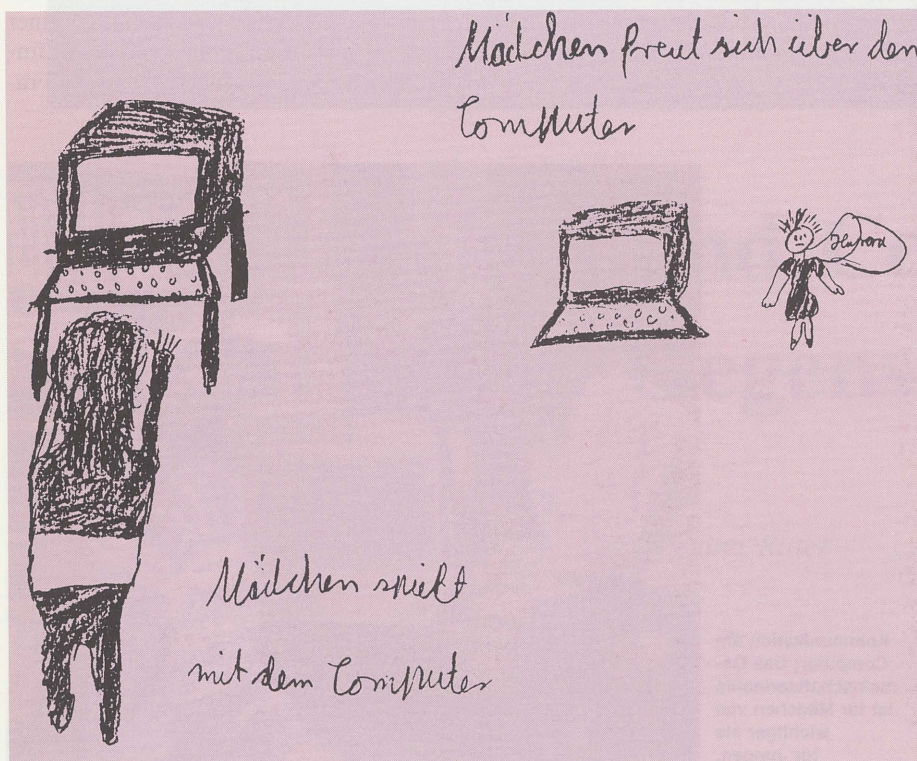 Mädchen freut sich über den
Computer
Mädchen spielt
mit dem Computer